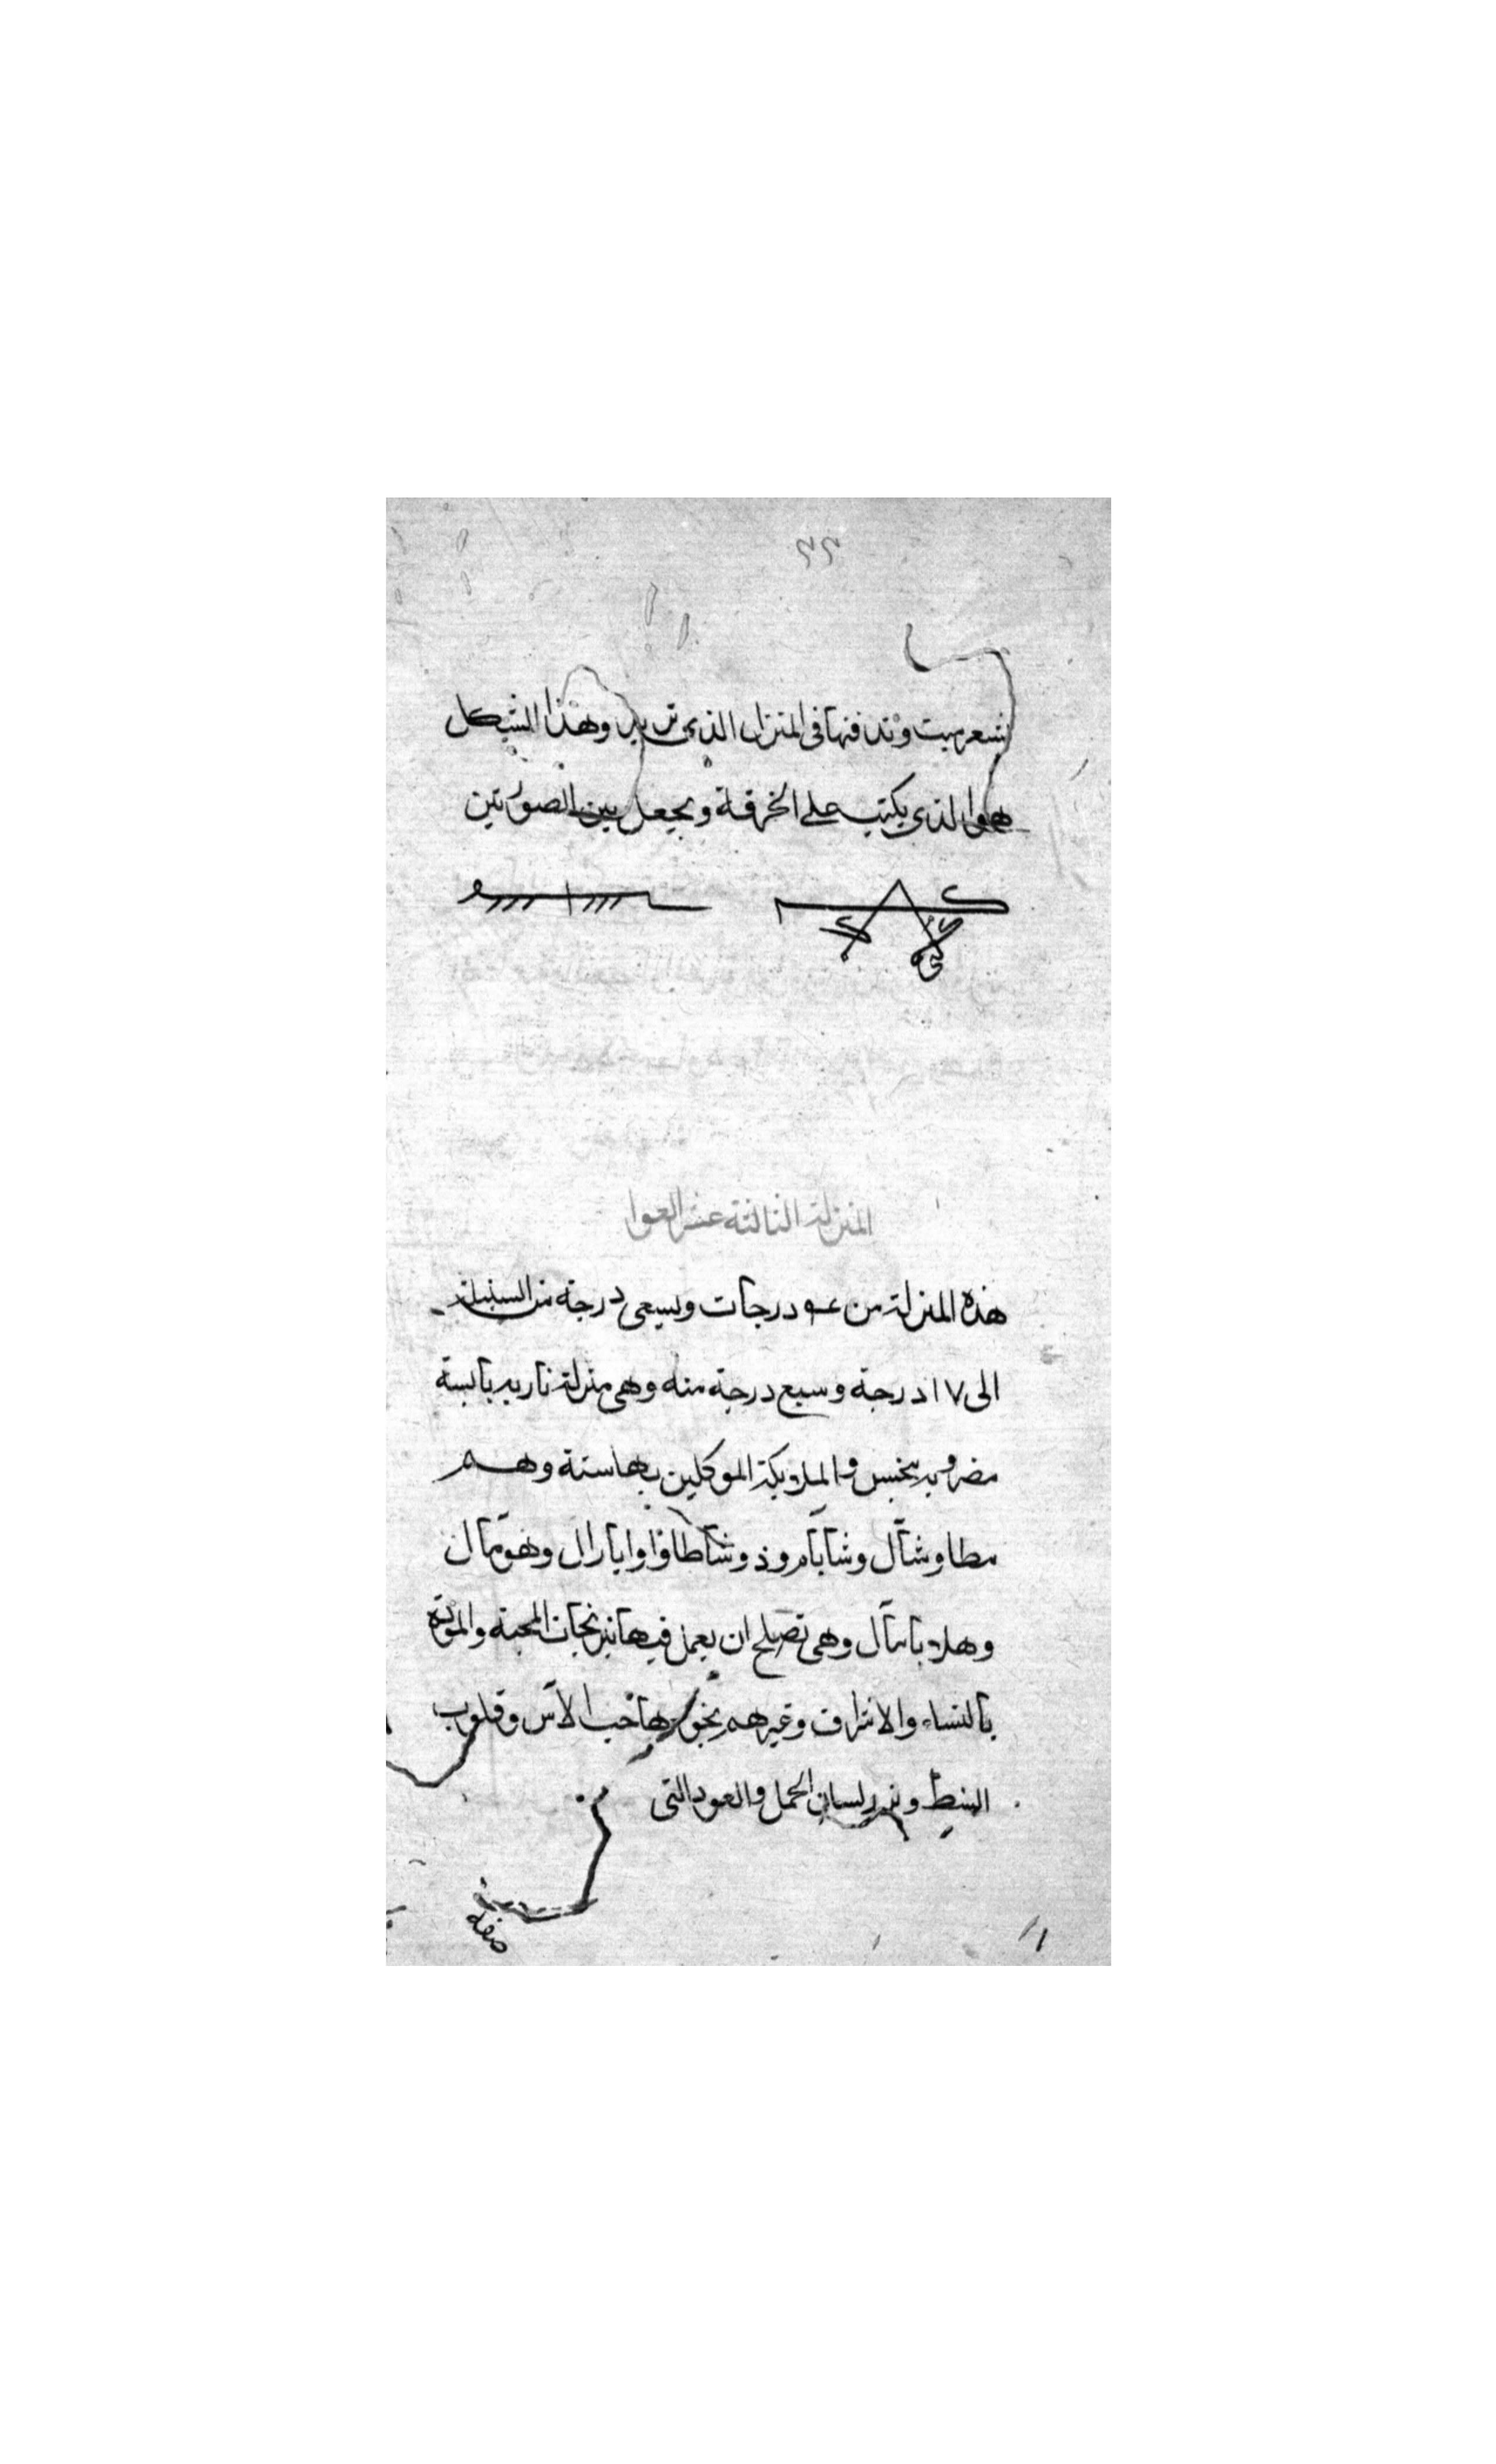 بشعر ميت وتدفنها في المنزل الذي تريد وهذا الشكل
هوا الذي يكتب على الخرقة ويجعل بين الصورتين
المنزلة الثالثة عشر العوا
هذه المنزلة من درجات وسبعى درجة من السنبلة
الى ١٧ درجة وسبع درجة منه وهي منزلة ناريه يابسة
والملايكة الموكلين بها ستة وهم
مطاوشآل وشاباروذ وشاطاوا وايارال وهويآل
وهي تصلح ان يعمل فيها نيرنجات المحبة والمودة
بالنساء والاشراف وغيرهم بخورها حب الاس وقلوب
وبزر لسان الحمل والعود التي
صفه